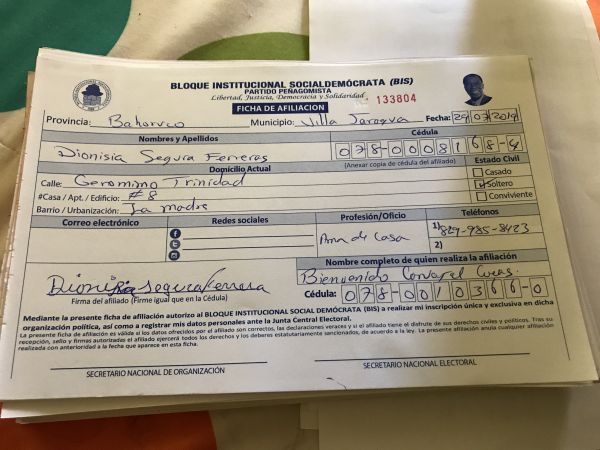 BLOQUE INSTITUCIONAL SOCIALDEMÓCRATA (BIS)
PARTIDO PEÑAGOMISTA
Libertad, Justicia, Democracia y Solidaridad
FICHA DE AFILIACION
133804
Provincia: Bahoruco Municipio: Villa Jaragua Fecha: 29/03/2019
Nombres y Apellidos Cédula
Dionisia Segura Ferreras 078-0008168-4
Domicilio Actual (Anexar copia de cédula del afiliado) Estado Civil
Calle: Geromino Trinidad Casado
#Casa / Apt. / Edificio: #8 Soltero
Barrio / Urbanización: La madre Conviviente
Correo electrónico Redes sociales Profesión/Oficio Teléfonos
Ama de Casa 1) 829-985-8423
2)
Nombre completo de quien realiza la afiliación
Bienvenido Cuevas
Dionisia Segura Ferrera
Cédula: 078-0010366-0
Firma del afiliado (Firme igual que en la Cédula)
Mediante la presente ficha de afiliación autorizo al BLOQUE INSTITUCIONAL SOCIAL DEMÓCRATA (BIS) a realizar mi inscripción única y exclusiva en dicha
organización política, así como a registrar mis datos personales ante la Junta Central Electoral.
La presente ficha de afiliación es válida si los datos ofrecidos por el afiliado son correctos, las declaraciones veraces y si el afiliado tiene el disfrute de sus derechos civiles y políticos. Tras su
recepción, sello y firmas autorizadas el afiliado ejercerá todos los derechos y los deberes estatutariamente sancionados, de acuerdo a la ley. La presente afiliación anula cualquier afiliación
realizada con anterioridad a la fecha que aparece en esta ficha.
SECRETARIO NACIONAL DE ORGANIZACIÓN SECRETARIO NACIONAL ELECTORAL